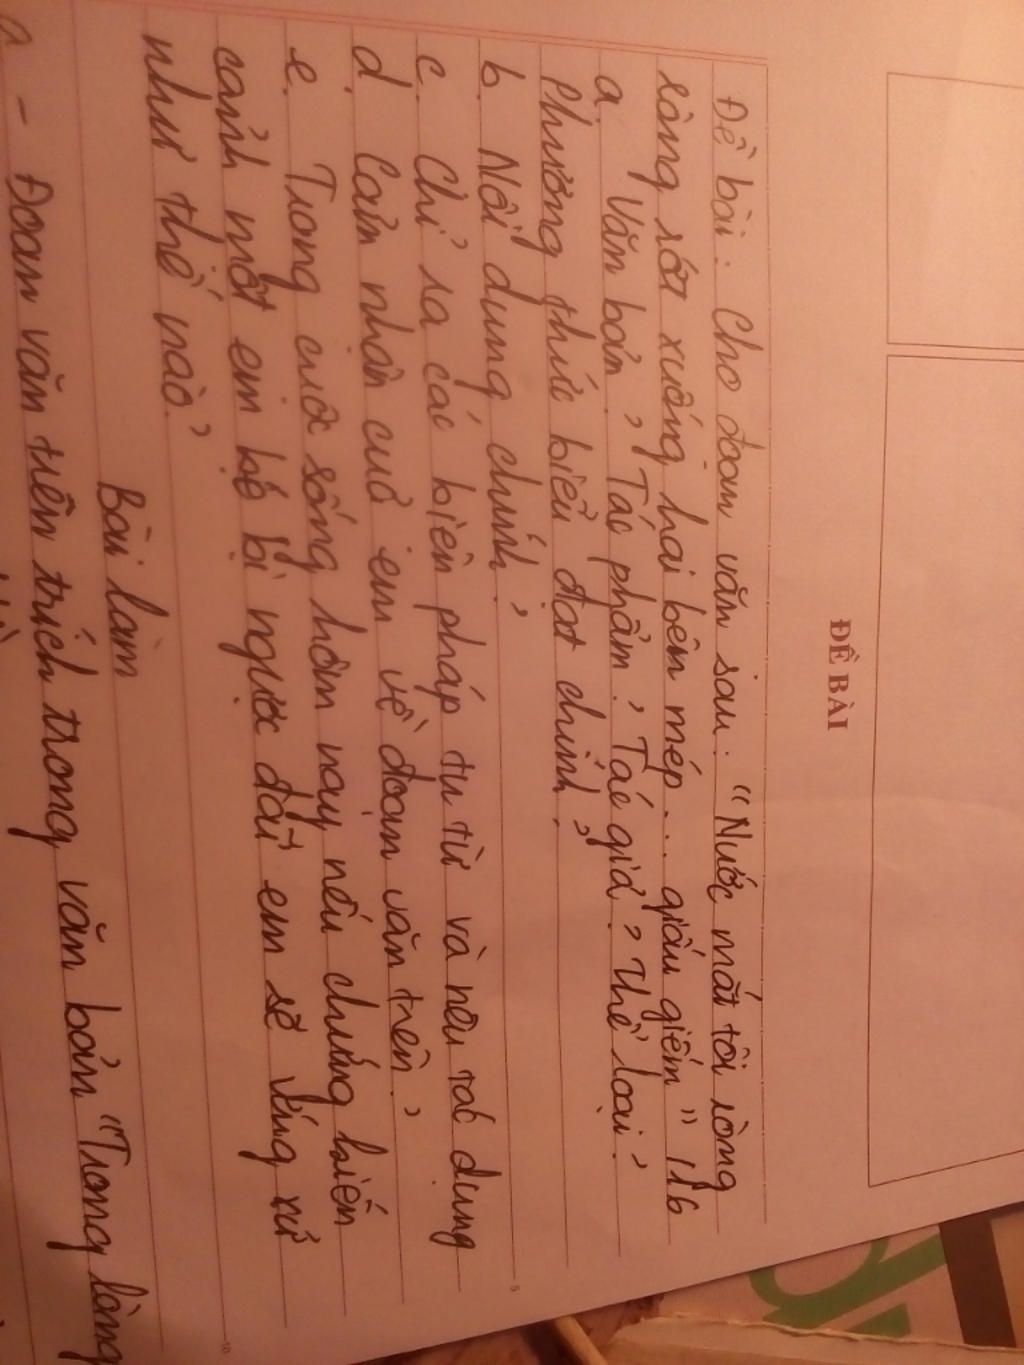 ĐỀ BÀI
Đề bài: Cho đoạn văn sau: "Nước mắt tôi ròng
ròng rớt xuống hai bên mép... giấu giếm" 116
a. Văn bản? Tác phẩm? Tác giả? Thể loại?
Phương thức biểu đạt chính?
b. Nội dung chính?
c. Chỉ ra các biện pháp tu từ và nêu tác dụng
d. Cảm nhận của em về đoạn văn trên?
e. Trong cuộc sống hôm nay nếu chứng kiến
cảnh một em bé bị ngược đãi em sẽ ứng xử
như thế nào?
Bài làm
a - Đoạn văn trên trích trong văn bản "Trong lòng